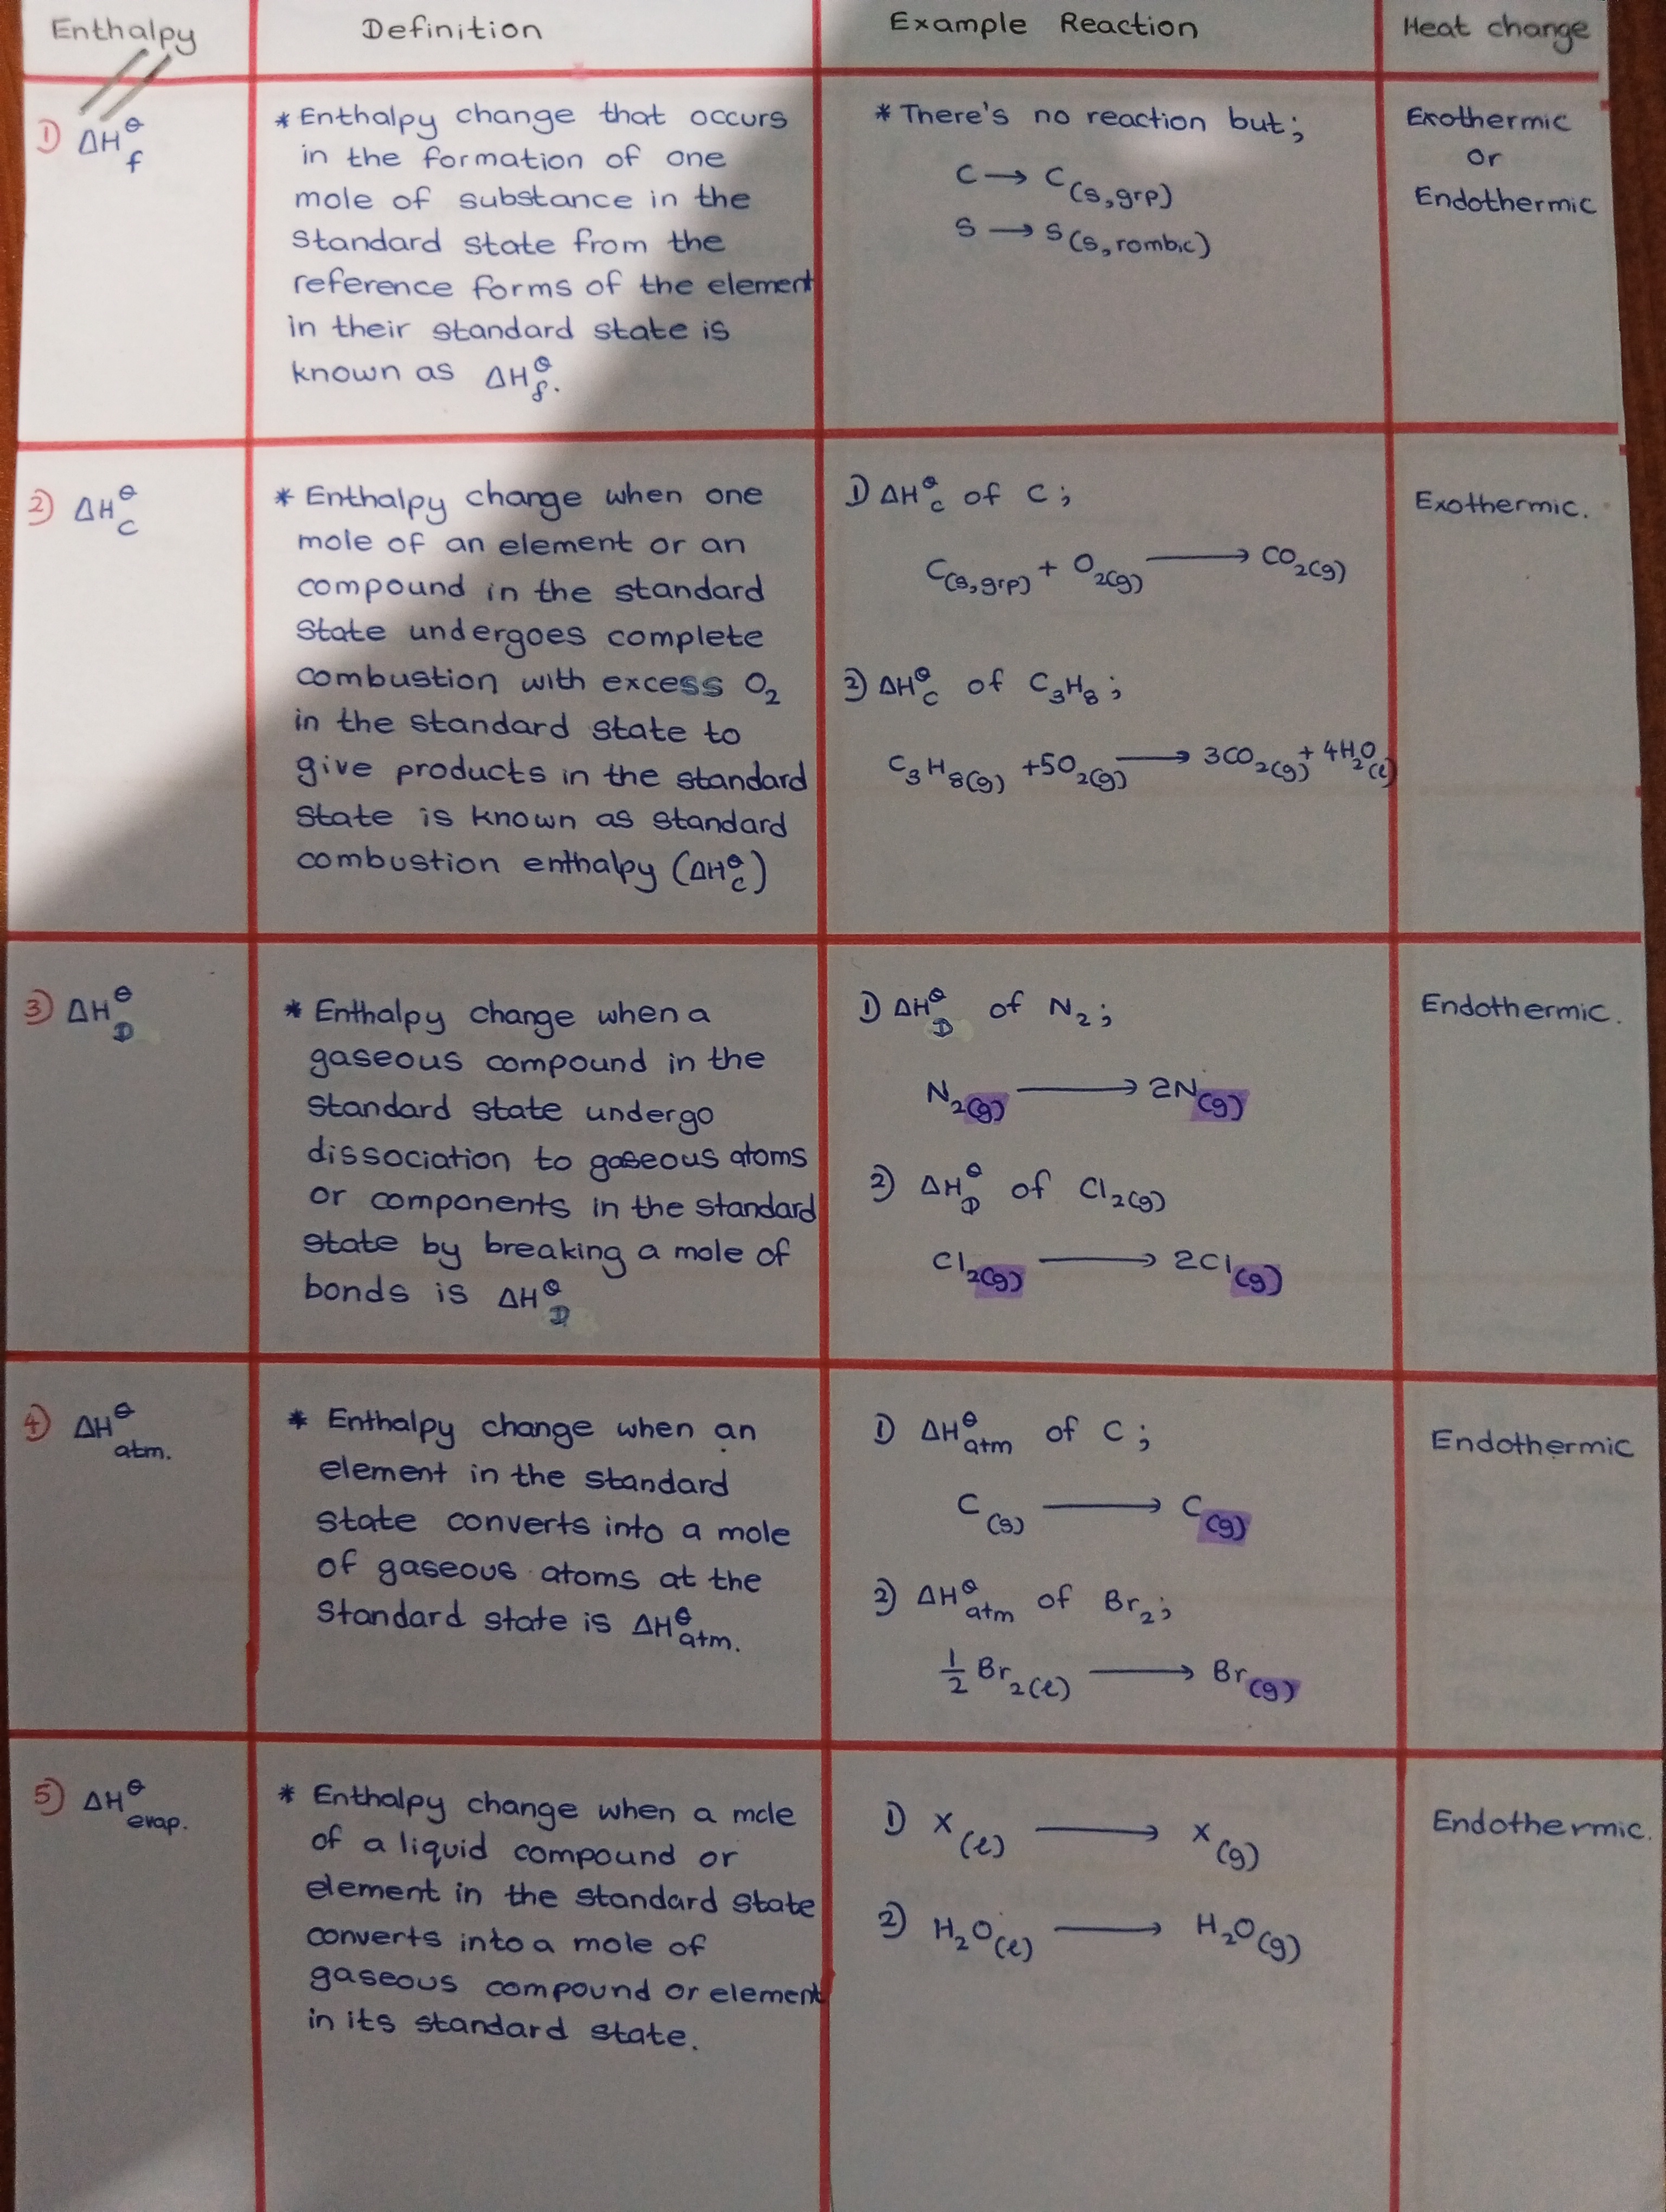 Enthalpy Definition Example Reaction Heat change
1) ΔH°f
* Enthalpy change that occurs
in the formation of one
mole of substance in the
standard state from the
reference forms of the element
in their standard state is
known as ΔH°f.
* There's no reaction but;
C → C(s,grp)
S → S(s,rombic)
Exothermic
or
Endothermic
2) ΔH°c
* Enthalpy change when one
mole of an element or an
compound in the standard
state undergoes complete
combustion with excess O₂
in the standard state to
give products in the standard
state is known as standard
combustion enthalpy (ΔH°c)
1) ΔH°c of C;
C(s,grp) + O₂(g) → CO₂(g)
2) ΔH°c of C₃H₈;
C₃H₈(g) +5O₂(g) → 3CO₂(g) + 4H₂O(l)
Exothermic.
3) ΔH°D
* Enthalpy change when a
gaseous compound in the
standard state undergo
dissociation to gaseous atoms
or components in the standard
state by breaking a mole of
bonds is ΔH°D
1) ΔH°D of N₂;
N₂(g) → 2N(g)
2) ΔH°D of Cl₂(g)
Cl₂(g) → 2Cl(g)
Endothermic.
4) ΔH°atm.
* Enthalpy change when an
element in the standard
state converts into a mole
of gaseous atoms at the
standard state is ΔH°atm.
1) ΔH°atm of C;
C(s) → C(g)
2) ΔH°atm of Br₂;
½ Br₂(l) → Br(g)
Endothermic
5) ΔH°evap.
* Enthalpy change when a mole
of a liquid compound or
element in the standard state
converts into a mole of
gaseous compound or element
in its standard state.
1) X(l) → X(g)
2) H₂O(l) → H₂O(g)
Endothermic.